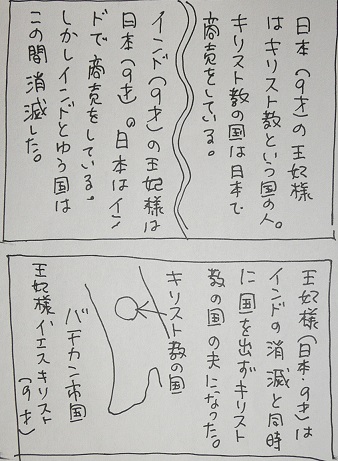 日本(9才)の王妃様
はキリスト教という国の人。
キリスト教の国は日本で
商売をしている。
インド(9才)の王妃様は
日本(9才)。日本はイン
ドで商売をしている。
しかしインドとゆう国は
この間消滅した。
王妃様(日本・9才)は
インドの消滅と同時
に国を出ずキリスト
教の国の夫になった。
キリスト教の国
バチカン市国
王妃様イエスキリスト
(9才)